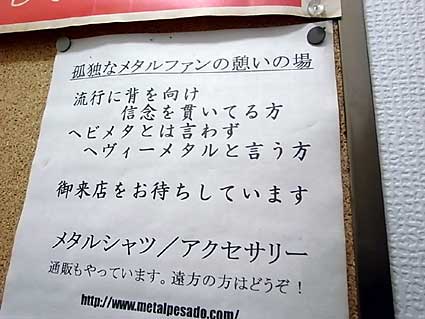 孤独なメタルファンの憩いの場
流行に背を向け
信念を貫いてる方
ヘビメタとは言わず
ヘヴィーメタルと言う方
御来店をお待ちしています
メタルシャツ／アクセサリー
通販もやっています。遠方の方はどうぞ！
http://www.metalpesado.com/